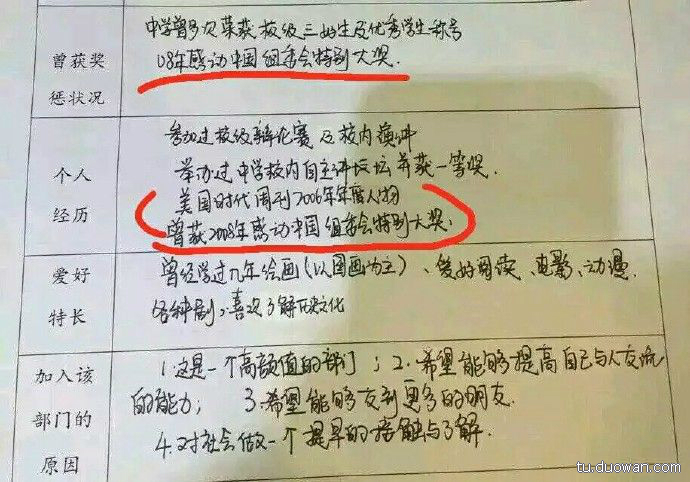 曾获奖
惩状况
中学曾多次荣获校级三好生及优秀学生称号
08年感动中国组委会特别大奖.
个人
经历
参加过校级辩论赛及校内演讲
举办过中学校内自主讲坛并获一等奖.
美国时代周刊2006年年度人物
曾获2008年感动中国组委会特别大奖.
爱好
特长
曾经学过九年绘画(以国画为主)、爱好阅读、电影、动漫、
各种剧、喜欢了解历史文化
加入该
部门的
原因
1.这是一个高颜值的部门; 2.希望能够提高自己与人交流
的能力; 3.希望能够交到更多的朋友.
4.对社会做一个提早的接触与了解.
tu.duowan.com